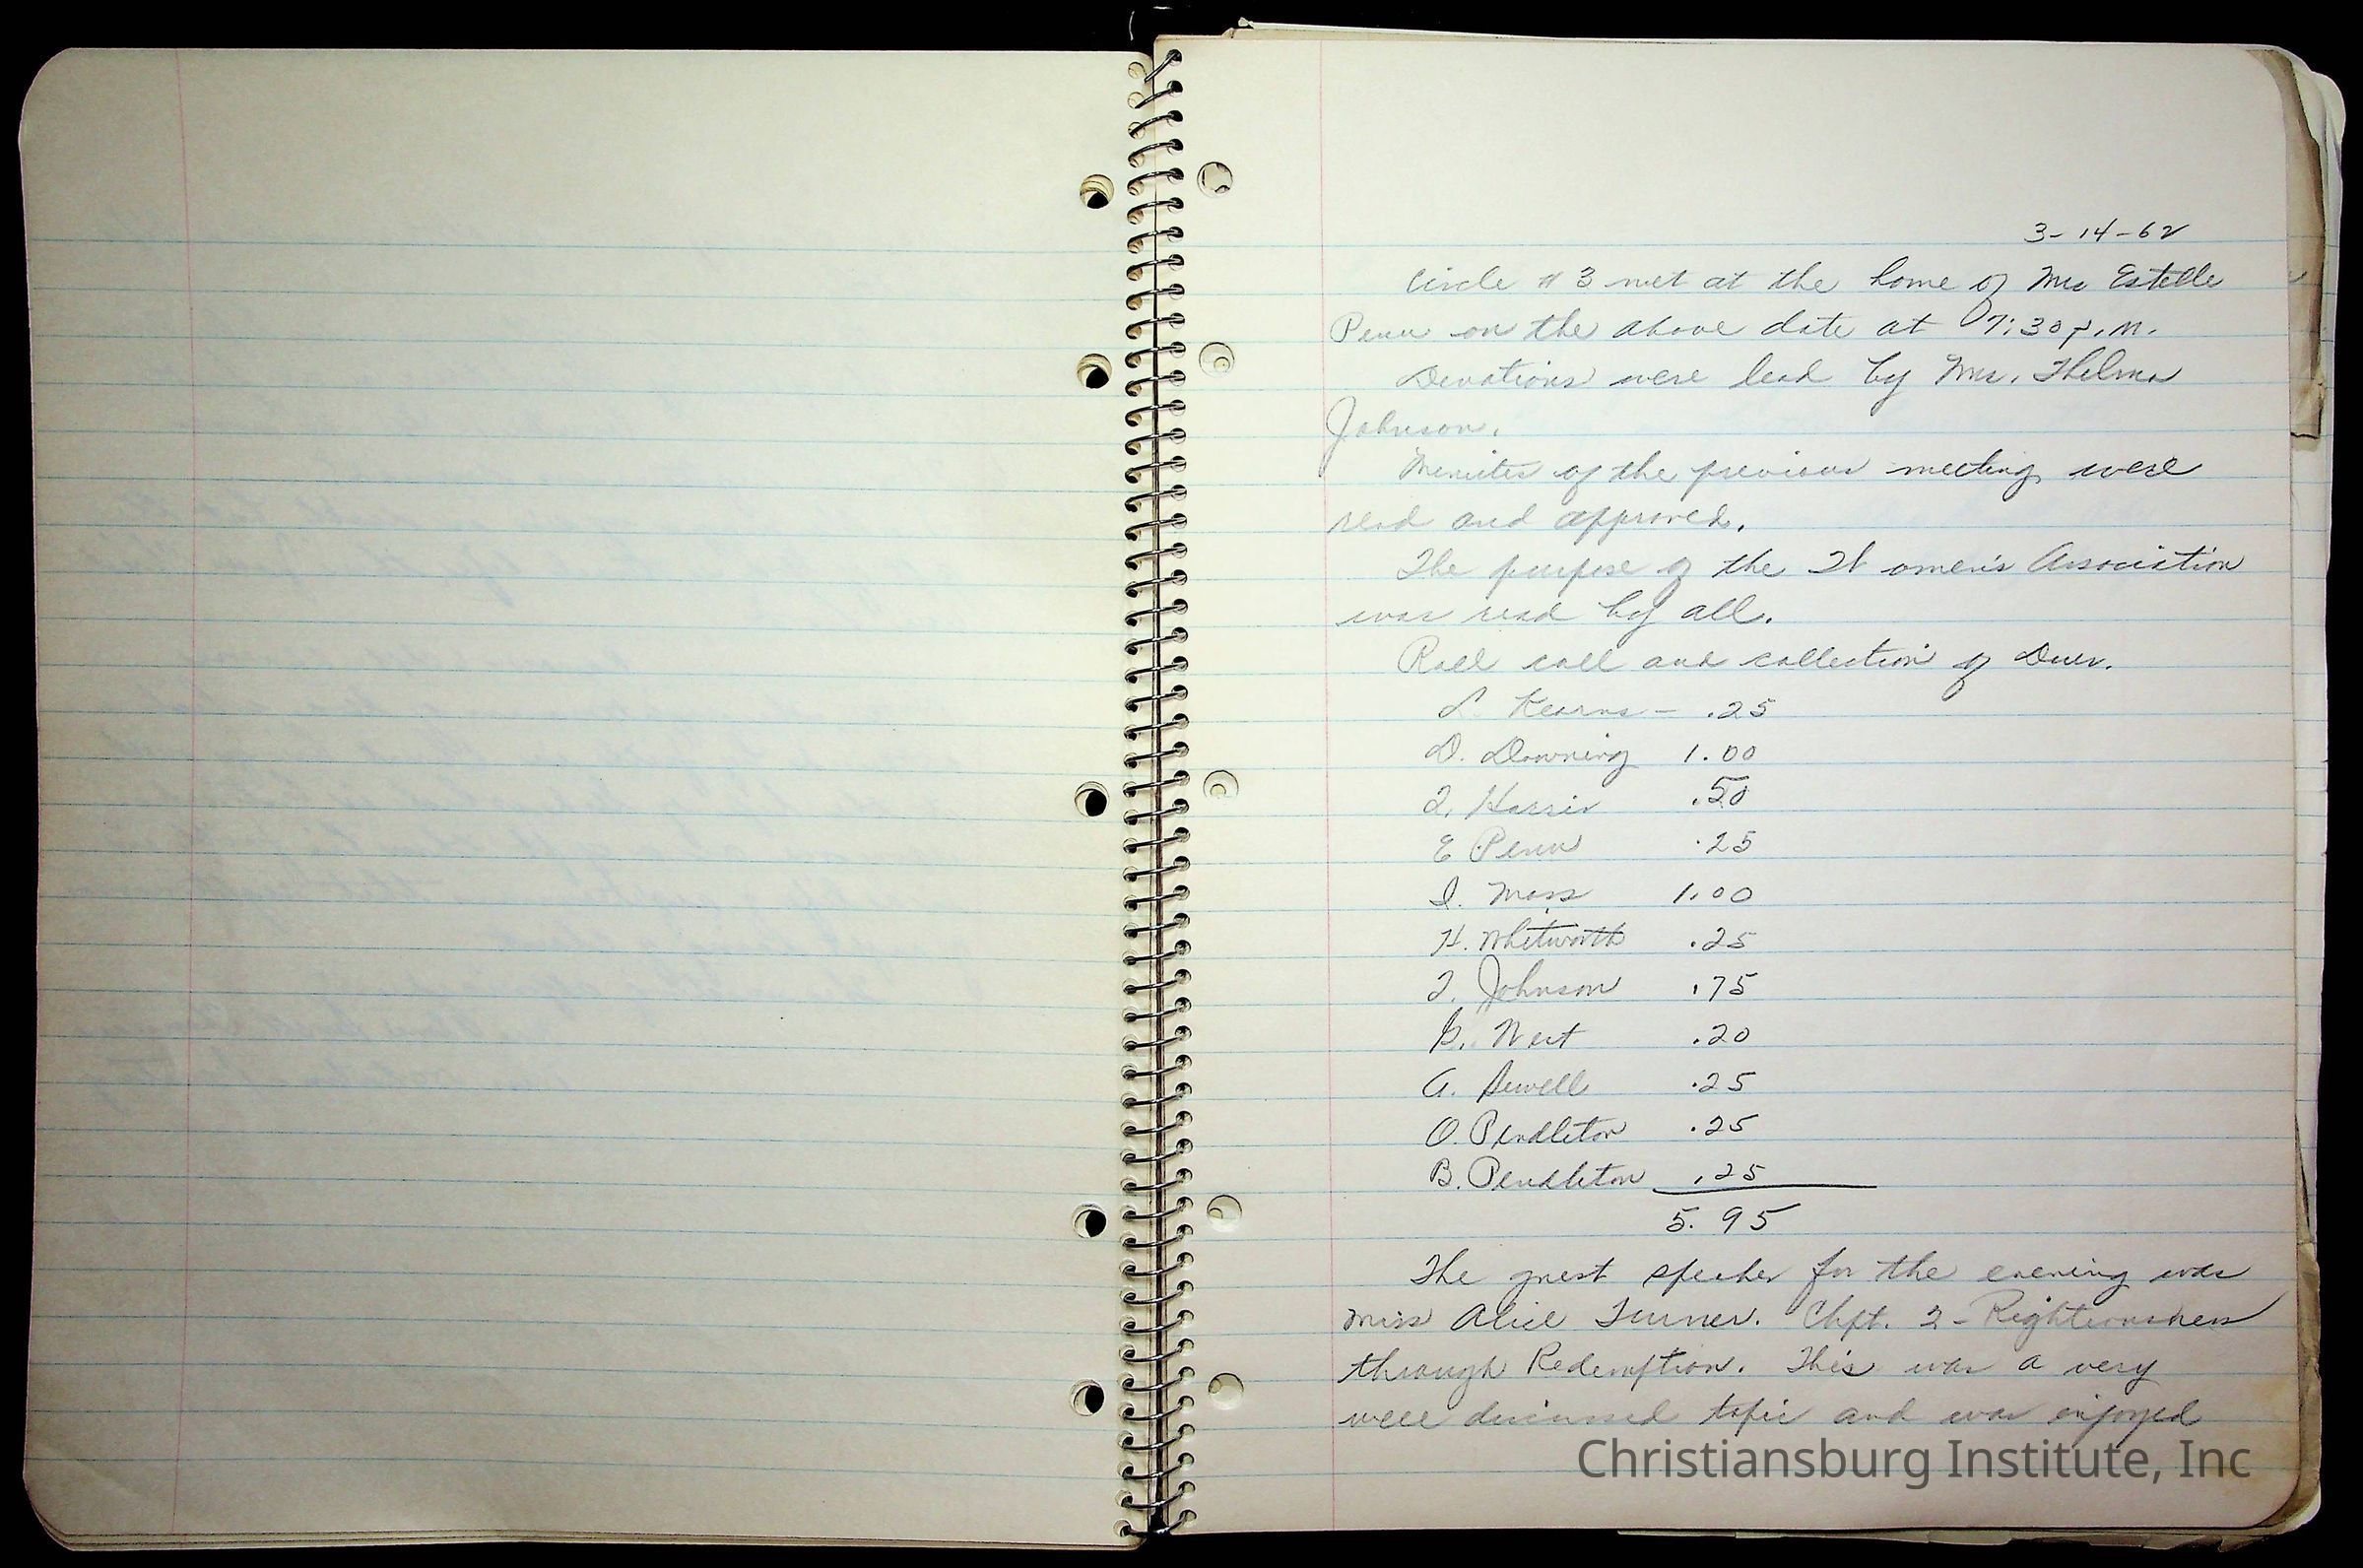 3-14-62
Circle # 3 met at the home of Mrs Estelle
Penn on the above date at 7:30 p.m.
Devotions were lead by Mrs. Thelma
Johnson.
Minutes of the previous meeting were
read and approved.
The purpose of the Women's Association
was read by all.
Roll call and collection of Dues.
L. Kearns - .25
D. Downing 1.00
T. Harris .50
E Penn .25
I. Moss 1.00
H. Whitworth .25
T. Johnson .75
G. West .20
A. Sewell .25
O. Pendleton .25
B. Pendleton .25
5.95
The guest speaker for the evening was
Miss Alice Turner. Chpt. 2 - Righteousness
through Redemption. This was a very
well discussed topic and was enjoyed
Christiansburg Institute, Inc